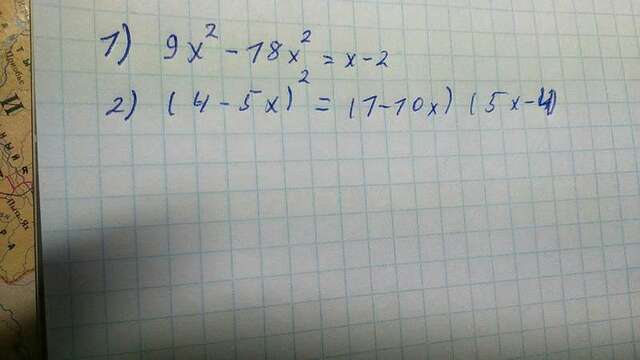 1) 9x² - 18x² = x - 2
2) (4 - 5x)² = (1 - 10x) (5x - 4)
И
Р
А